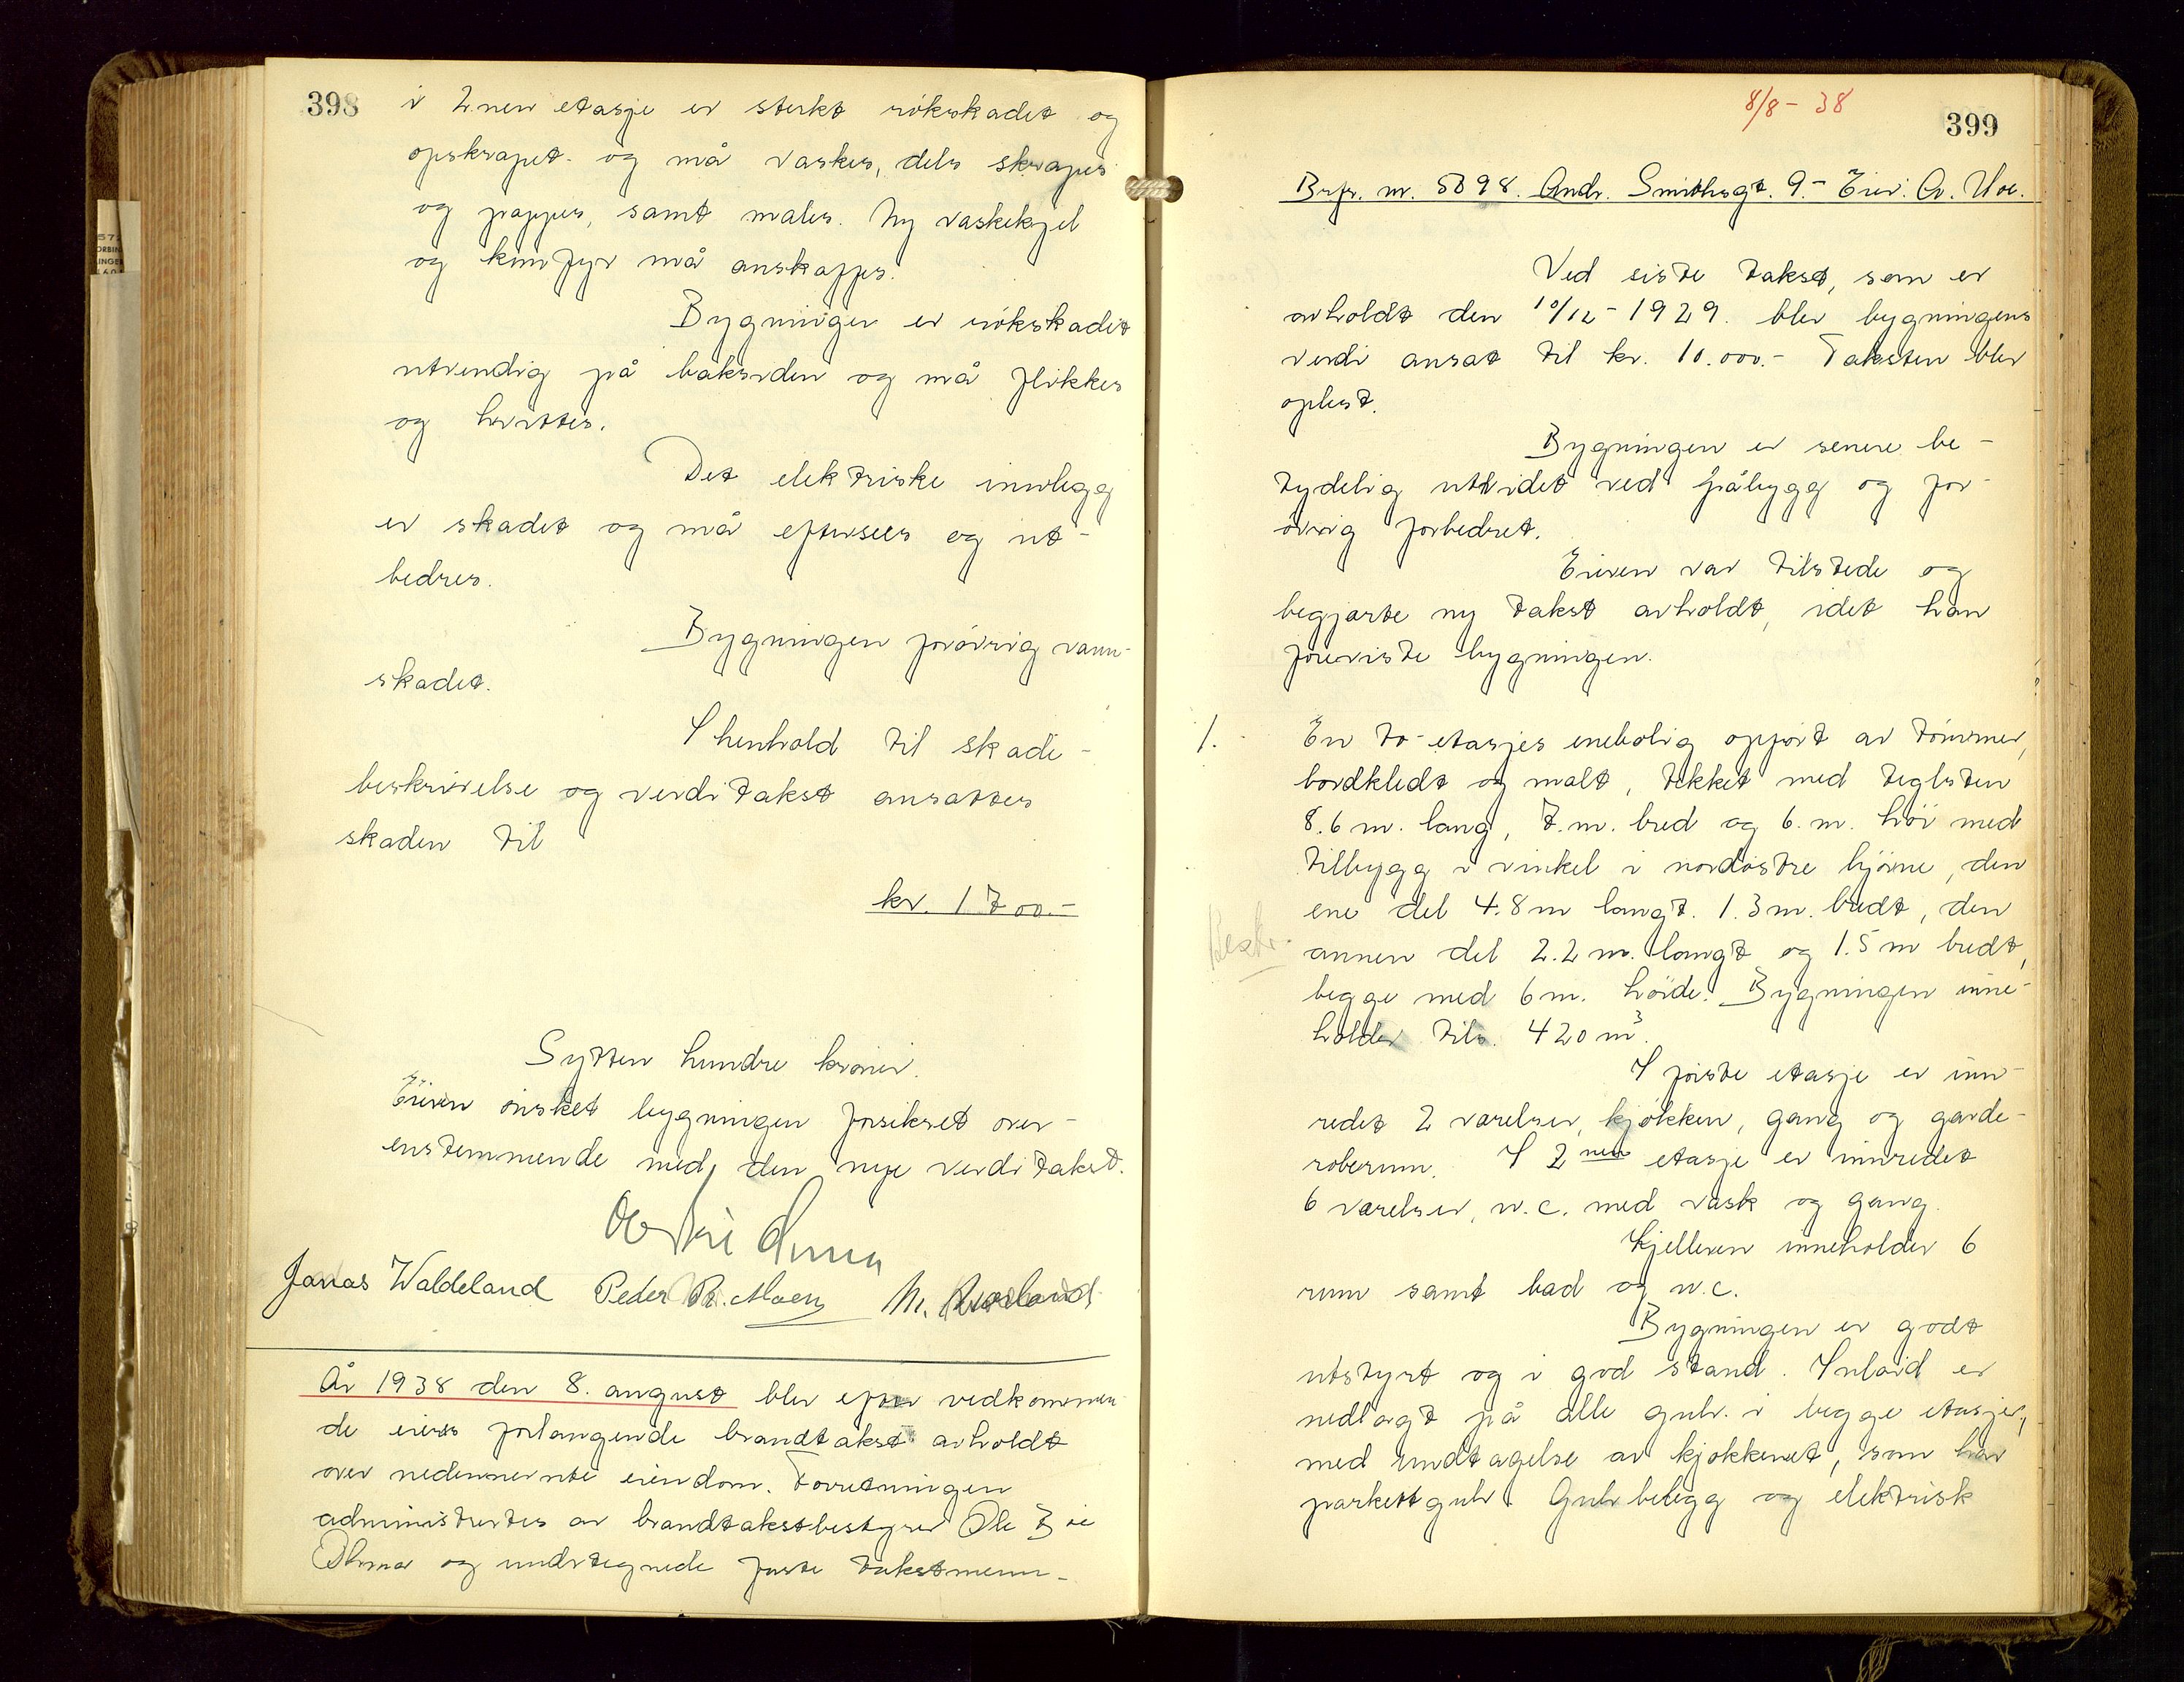 398
i 2.nen etasje er sterkt rökskadet og
opskrapet. og må vaskes, dels skrapes
og pappes, samt males. Ny vaskekjel
og komfyr må anskaffes.
Bygningen er rökskadet
utvendig på baksiden og må flikkes
og hvittes.
Det elektriske innlegg
er skadet og må eftersees og ut-
bedres.
Bygningen forövrig vann-
skadet.
I henhold til skade-
beskrivelse og verditakst ansattes
skaden til
kr. 1700.-
Sytten hundre kroner.
Eieren önsket bygningen forsikret over-
enstemmende med den nye verditakst.
Jonas Waldeland Peder R. Moen
År 1938 den 8. august blev efter vedkommen-
de eiers forlangende brandtakst avholdt
over nedennevnte eiendom. Forretningen
administrertes av brandtakstbestyrer Ole Bie
Ohma og undertegnede faste takstmenn-
8/8-38
399
Brfr. nr. 5898. Andr. Smithsgt. 9.- Eier: A. Moe.
Ved siste takst, som er
avholdt den 10/12-1929. blev bygningens
verdi ansat til kr. 10.000.- Taksten blev
oplest.
Bygningen er senere be-
tydelig utvidet ved påbygg og for-
övrig forbedret.
Eieren var tilstede og
begjærte ny takst avholdt, idet han
foreviste bygningen.
1. En to-etasjes enebolig opfört av tömmer,
bordkledt og malt, tekket med teglsten
8.6 m. lang, 7.m. bred og 6.m. höi med
tilbygg i vinkel i nordöstre hjörne, den
ene del 4.8m langt. 1.3m. bredt, den
Beskr.
annen del 2.2 m. langt og 1.5 m bredt,
begge med 6m. höide. Bygningen inne-
holder tils. 420 m³.
I förste etasje er inn-
redet 2 værelser, kjökken, gang og garde-
roberum. I 2nen etasje er innredet
6 værelser, w.c. med vask og gang.
Kjelleren inneholder 6
rum samt bad og w.c.
Bygningen er godt
utstyrt og i god stand. Inlaid er
nedlagt på alle gulv i begge etasjer,
med undtagelse av kjökkenet, som har
parkettgulv. Gulvbelegg og elektrisk